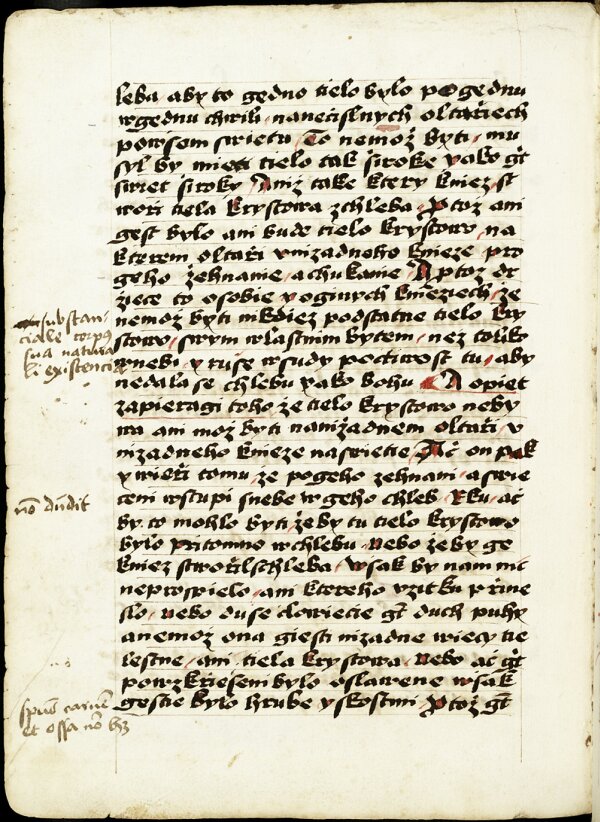 leba aby to gedno tielo bylo pogednu
wgednu chwili nanecislnych oltařiech
powsem swietu To nemož byti mu
syl by mieti tielo tak široke yako gt
swiet široky Aniž take ktery kniez st
woři tiela krystowa zchleba Ptož ani
gest bylo ani bude tielo krystowo na
kterem oltaři vnižadneho knieze pro
geho žehnanie achukanie A ptož dr
žiece to o sobie y oginych kniežiech že
nemož byti nikdiez podstatne tielo kry
stowo swym wlastnim bytem nez toliko
wnebi y ruse wsudy poctiwost tu aby
nedala se chlebu yako bohu A opiet
zapieragi toho že tielo krystowo neby
wa ani mož byti nanižadnem oltaři v
nizadneho knieze naswietie Ač on pak
y wieři tomu že pogeho žehnani aswie
ceni wstupi snebe w geho chleb Rku ač
by to mohlo byti žeby tu tielo krystowo
bylo pritomno wchlebu nebo žeby ge
kniez stwořil schleba wsak by nam nic
neprospielo ani kterého vzitku přine
slo nebo duse clowiecie gt duch puhy
anemož ona giesti nizadne wiecy tie
lestne ani tiela krystowa Nebo ač gt
powzkrieseni bylo oslawene wsak
gestie bylo hrube y skostmi Ptož gt
substan-
ciale corpus
sua natura
li existencia
no dudit
spus carne
et ossa no hz